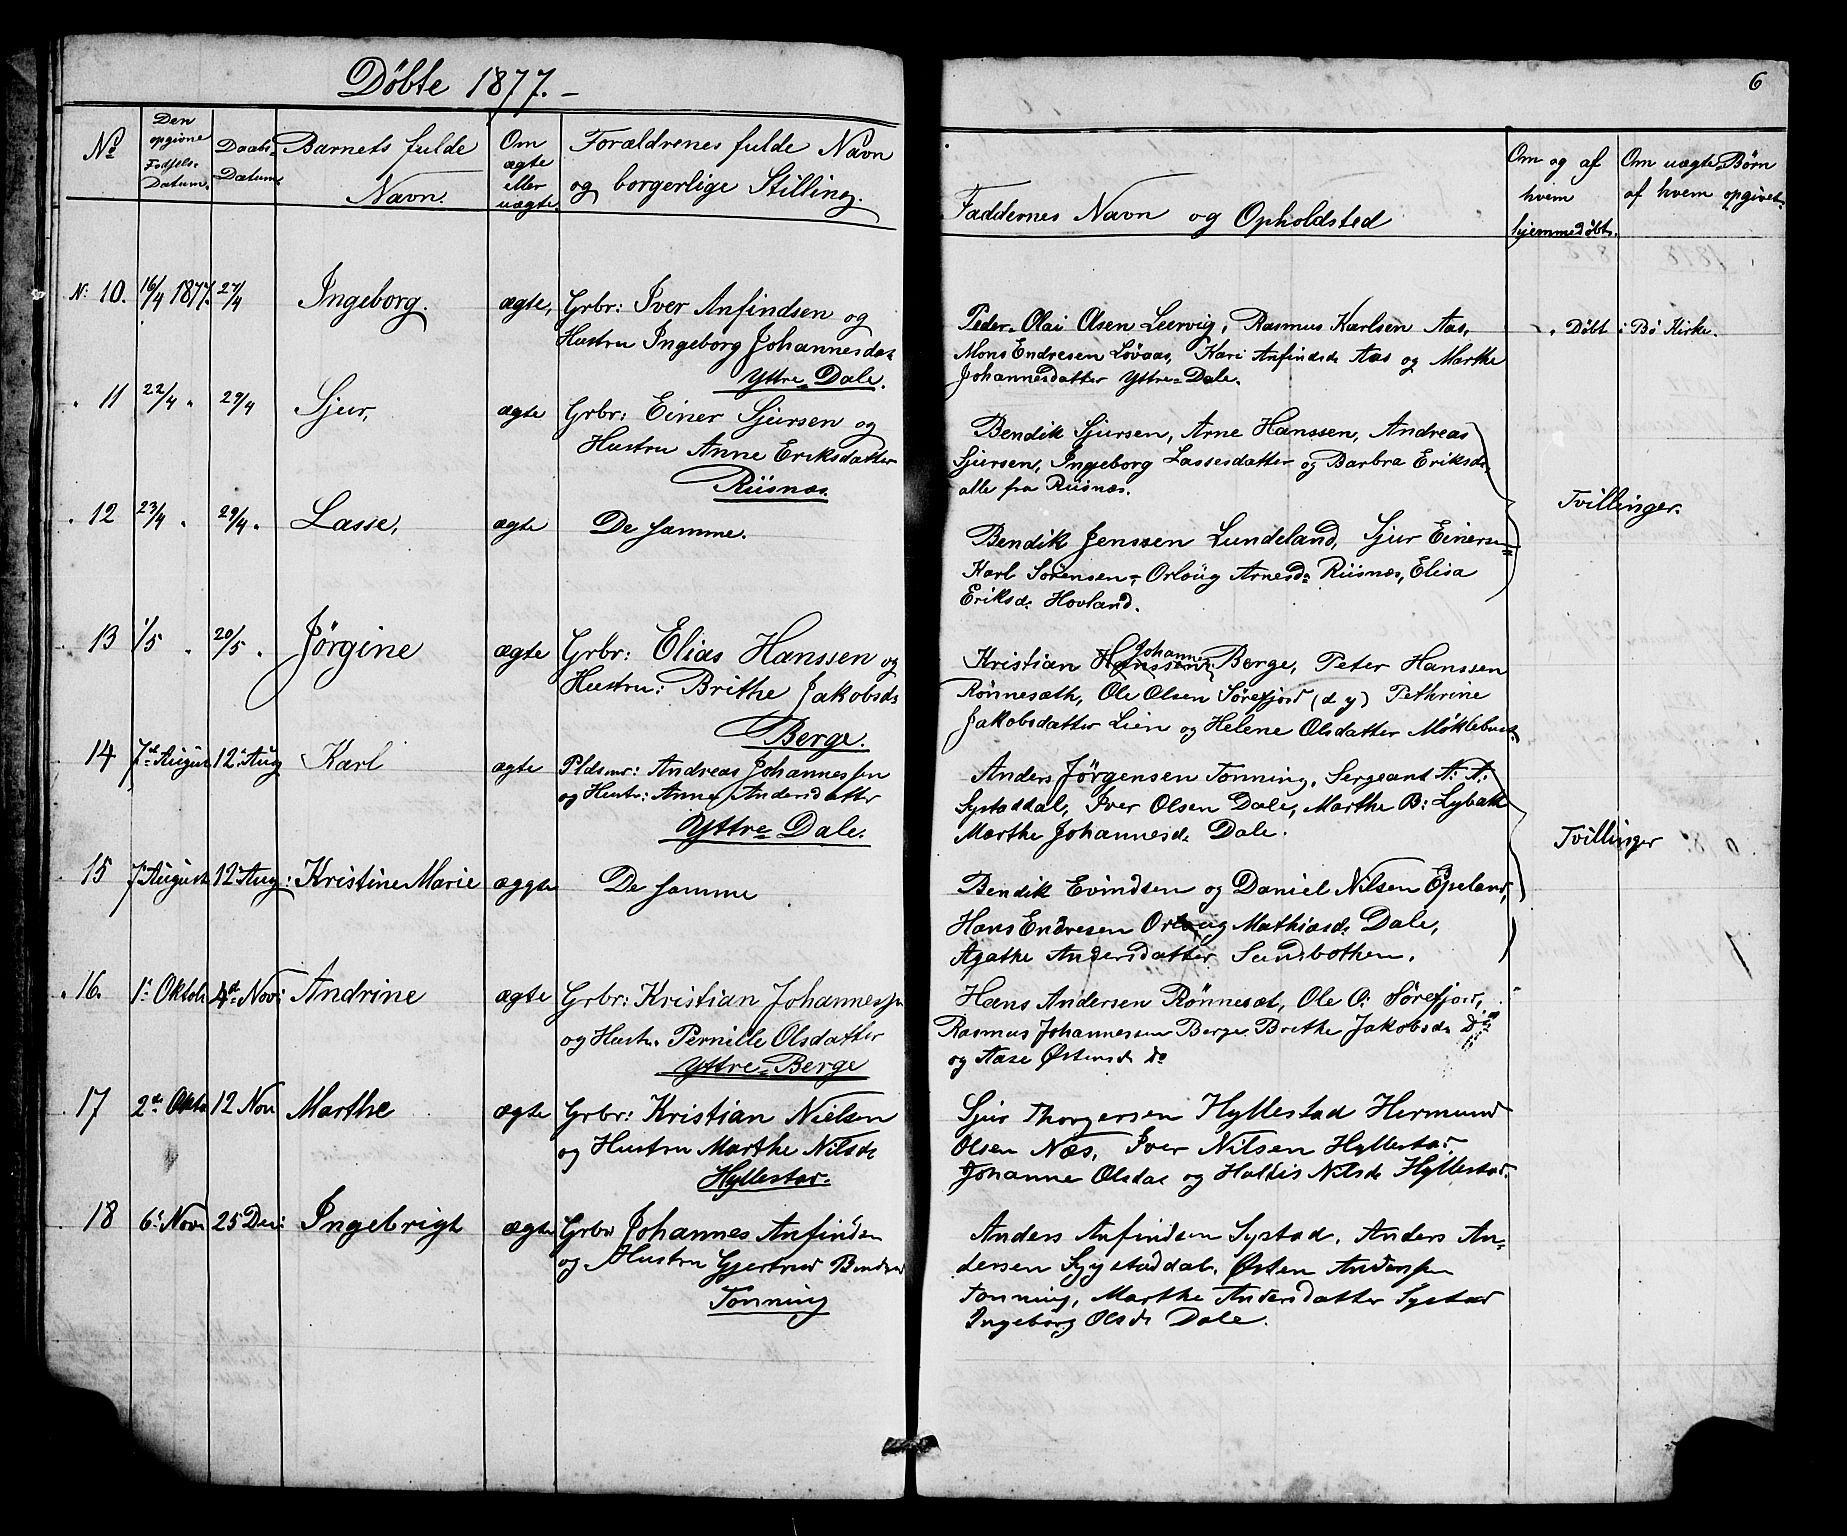 Döbte 1877.
6
No
Den opgivne Fødsels- Datum.
Daabs- Datum.
Barnets fulde Navn.
Om ægte eller uægte.
Forældrenes fulde Navn
og borgerlige Stilling.
Faddernes Navn og Opholdsted
Om og af hvem hjemmedøbt.
Om uægte Børn af hvem opgivet.
N: 10. 16/4 1877. 27/4 Ingeborg. ægte, Grbr: Iver Anfindsen og
Hustru Ingeborg Johannesda:
Yttre-Dale.
Peder-Olai Olsen Leervig, Rasmus Karlsen Aas,
Mons Endresen Lövaas, Kari Anfindsd: Aas og Marthe
Johannesdatter Yttre-Dale.
Døbt i Bö Kirke.
" 11 22/4 " 29/4 Sjur, ægte Grbr: Einer Sjursen og
Hustru Anne Eriksdatter
Riisnæs.
Bendik Sjursen, Arne Hanssen, Andreas
Sjursen, Ingeborg Lassesdatter og Barbra Eriksd:
alle fra Riisnæs.
Tvillinger.
" 12 23/4 " 29/4 " Lasse, ægte De samme.
Bendik Jenssen Lundeland, Sjur Einersen
Karl Sörensen- Orloüg Arnesd: Riisnæs, Elisa
Eriksd: Hovland.
13 1/5 " 20/5 " Jörgine ægte Grbr: Elias Hanssen og
Hustru: Brithe Jakobsd:
Berge.
Kristian Hanssen Johann: Berge, Peter Hanssen
Rönnesæth, Ole Olsen Sörefjord (d y) Pethrine
Jakobsdatter Lien og Helene Olsdatter Möklebust
14 7de August 12: Aug Karl ægte Pldsmr: Andreas Johannessen
og Hustr: Anne Andersdatter
Yttre-Dale.
Anders Jörgensen Tonning, Sergeant N: A:
Systaddal, Iver Olsen Dale, Marthe B: Lybæk
Marthe Johannesd: Dale.
Tvillinger
15 7: August 12 Aug: Kristine Marie æggte De samme
Bendik Evindsen og Daniel Nilsen Espeland,
Hans Endresen Orloug Mathiasd: Dale,
Agathe Andersdatter Sandbothen.
" 16. 1: Oktob: 4de Nov: Andrine ægte Grbr: Kristian Johannessen
og Hustr. Pernille Olsdatter
Yttre-Berge
Hans Andersen Rönneset, Ole O: Sörefjord,
Rasmus Johannessen Berge Brithe Jakobsd: Do
og Aase Östensd: do
17 2de Okto 12 Nov Marthe ægte Grbr: Kristian Nielsen
og Hustru Marthe Nilsd:
Hyllestad.
Sjur Thorgersen Hyllestad Hermund
Olsen Næs, Iver Nilsen Hyllestad
Johanne Olsdat og Haldis Nilsd: Hyllestad.
18 6: Nov: 25 Des: Ingebrigt ægte Grbr Johannes Anfindsen
og Hustru Gjertrud Bendixd
Tonning
Anders Anfindsen Systad, Anders An-
dersen Systaddal, Østen Anderssen
Tonning, Marthe Andersdatter Systad
Ingeborg Olsd: Dale.